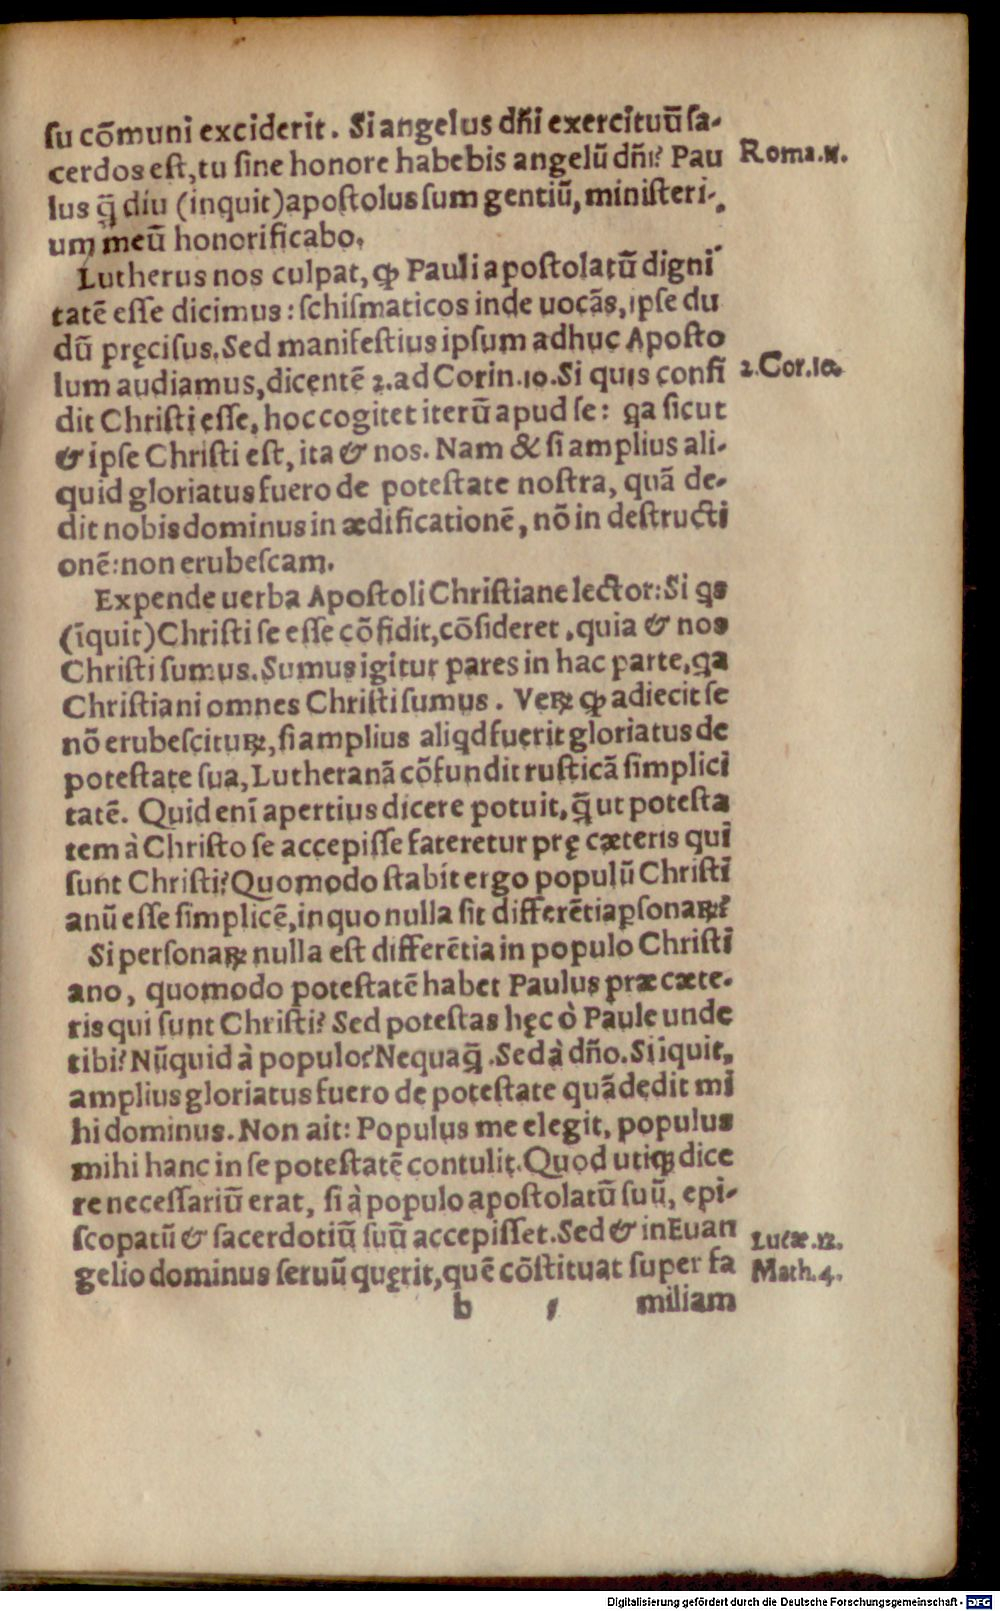 su cõmuni exciderit. Si angelus dñi exercituũ sa-
cerdos est, tu sine honore habebis angelũ dñi? Pau
lus q̃ diu (inquit) apostolus sum gentiũ, ministeri-
um meũ honorificabo.
Roma.11.
Lutherus nos culpat, ꝙ Pauli apostolatũ digni
tatẽ esse dicimus: schismaticos inde uocãs, ipse du
dũ pręcisus. Sed manifestius ipsum adhuc Aposto
lum audiamus, dicentẽ 2. ad Corin. 10. Si quis confi
dit Christi esse, hoc cogitet iterũ apud se: ꝗa sicut
& ipse Christi est, ita & nos. Nam & si amplius ali-
quid gloriatus fuero de potestate nostra, quã de-
dit nobis dominus in ædificationẽ, nõ in destructi
onẽ: non erubescam.
2.Cor.10.
Expende uerba Apostoli Christiane lector: Si ꝗs
(ĩquit) Christi se esse cõfidit, cõsideret, quia & nos
Christi sumus. Sumus igitur pares in hac parte, ꝗa
Christiani omnes Christi sumus. Veꝝ ꝙ adiecit se
nõ erubesciturꝝ, si amplius aliꝗd fuerit gloriatus de
potestate sua, Lutheranã cõfundit rusticã simplici
tatẽ. Quid enĩ apertius dicere potuit, q̃ ut potesta
tem à Christo se accepisse fateretur prę cæteris qui
sunt Christi? Quomodo stabit ergo populũ Christi
anũ esse simplicẽ, in quo nulla sit differẽtia ꝑsonaꝝ?
Si personaꝝ nulla est differẽtia in populo Christi
ano, quomodo potestatẽ habet Paulus præ cæte-
ris qui sunt Christi? Sed potestas hęc ò Paule unde
tibi? Nũquid à populo? Nequaq̃. Sed à dño. Si ĩquit,
amplius gloriatus fuero de potestate quã dedit mi
hi dominus. Non ait: Populus me elegit, populus
mihi hanc in se potestatẽ contulit. Quod utiqꝫ dice
re necessariũ erat, si à populo apostolatũ suũ, epi-
scopatũ & sacerdotiũ suũ accepisset. Sed & in Euan
gelio dominus seruũ quęrit, quẽ cõstituat super fa
Lucæ.12.
Math.4.
b 1 miliam
Digitalisierung gefördert durch die Deutsche Forschungsgemeinschaft - DFG